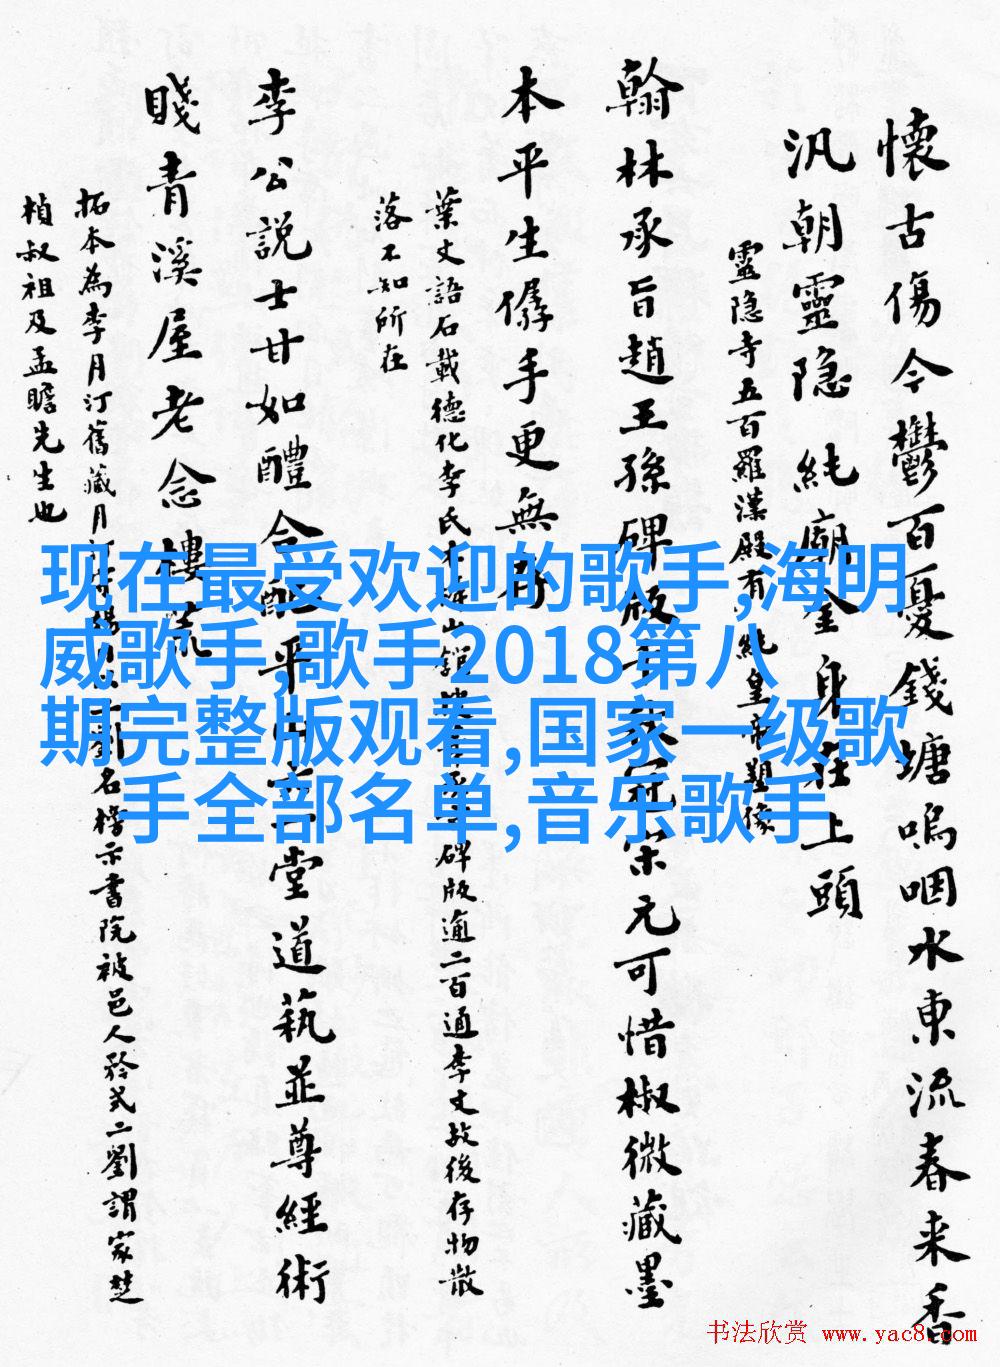 懷古傷今鬱百憂錢塘嗚咽水東流春來香
汎朝靈隱純廟金身在上頭
靈隐寺五百羅漢殿有純皇帝塑像
翰林承旨趙王孫碑版
元可惜椒微藏墨
本平生儔手更無
葉文語石載德化李氏
碑版逾二百通李文故後存物散
落不知所在
李公說士甘如醴合
平
堂道蓺並尊經術
賤青溪屋老念樓荒
拓本為李月汀舊藏月
名榜示書院被邑人
二劉謂家楚
楨叔祖及孟瞻先生也
现在最受欢迎的歌手,海明
威歌手,歌手2018第八
期完整版观看,国家一级歌
手全部名单,音乐歌手
书法欣赏 www.yac8.com